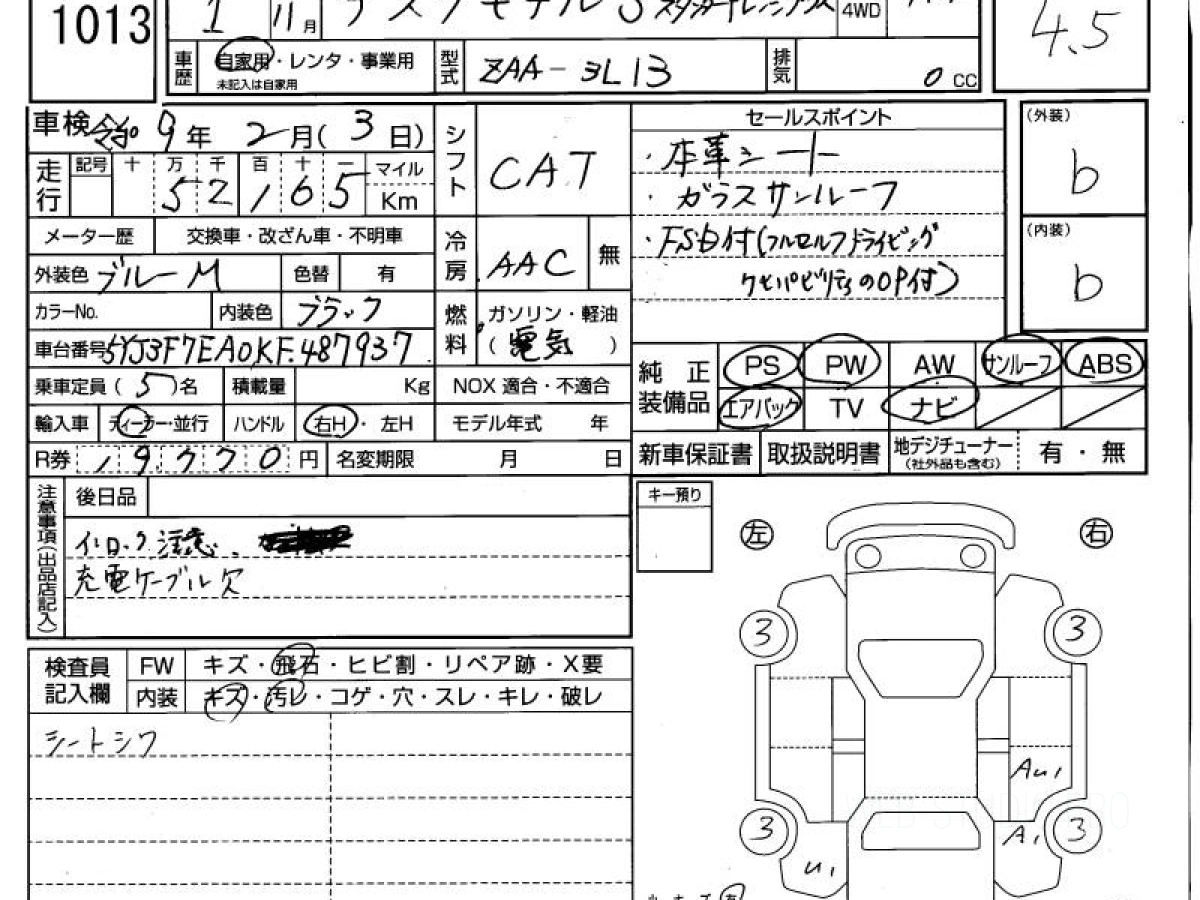 1013
1 11月 テスラモデル3 スタンダードレンジプラス 4WD
4.5
車歴 自家用・レンタ・事業用 未記入は自家用 型式 ZAA-3L13 排気 0 CC
車検 令和 9年 2月(3日)
走行 記号 十 万 千 百 十 一 マイル
52165 Km
シフト CAT
メーター歴 交換車・改ざん車・不明車
外装色 ブルーM 色替 有
冷房 AAC 無
カラーNo. 内装色 ブラック
燃料 ガソリン・軽油
(電気)
車台番号 5YJ3F7EA0KF487937
乗車定員(5)名 積載量 Kg NOX 適合・不適合
輸入車 ディーラー・並行 ハンドル 右H・左H モデル年式 年
R券 19,770円 名変期限 月 日
セールスポイント
・本革シート
・ガラスサンルーフ
・FSD付(フルセルフドライビング
ケイパビリティのOP付)
(外装)
b
(内装)
b
純正装備品 PS PW AW サンルーフ ABS
エアバック TV ナビ
新車保証書 取扱説明書 地デジチューナー(社外品も含む) 有・無
注意事項(出品店記入)
後日品
イモロック注意、
充電ケーブル欠
キー預り
左 右
検査員記入欄
FW キズ・飛石・ヒビ割・リペア跡・X要
内装 キズ・汚レ・コゲ・穴・スレ・キレ・破レ
シートシワ
3 3
AU1
3 3
U1 A1